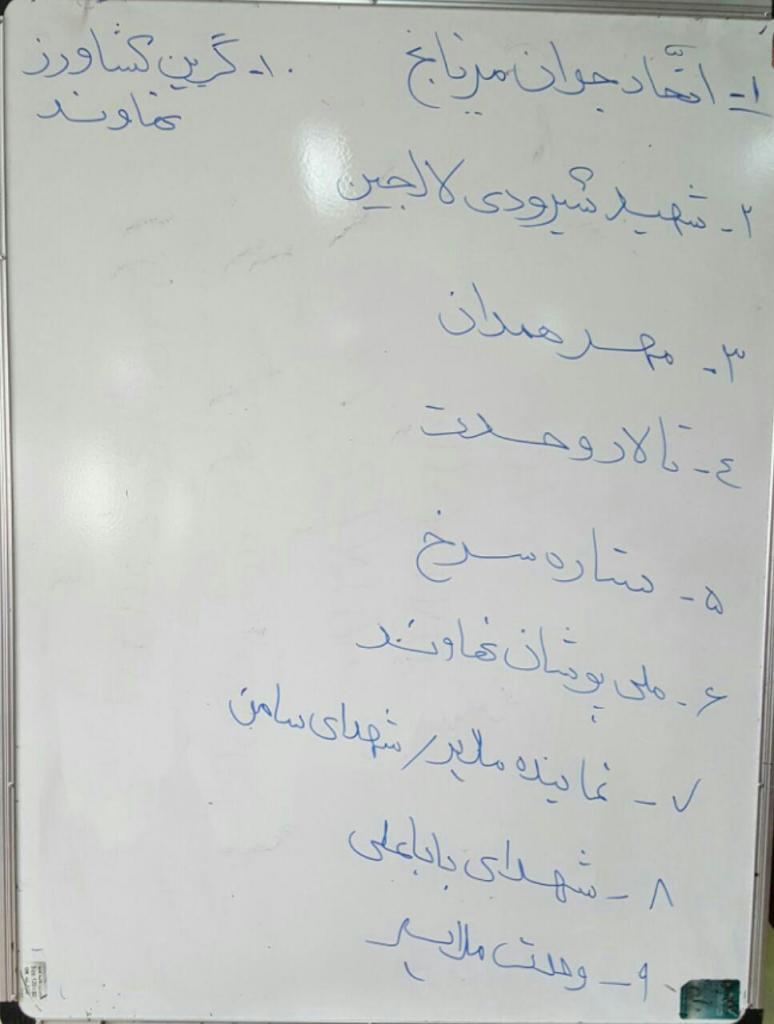 ۱- اتّحاد جوان میرنابخ
۲- شهید شیرودی لالجین
۳- مهر همدان
۴- تالار وحدت
۵- ستاره سرخ
۶- ملی پوشان نهاوند
۷- نماینده ملایر/ شهدای سامن
۸- شهدای باباعلی
۹- وحدت ملایر
۱۰- گرین کشاورز
نهاوند